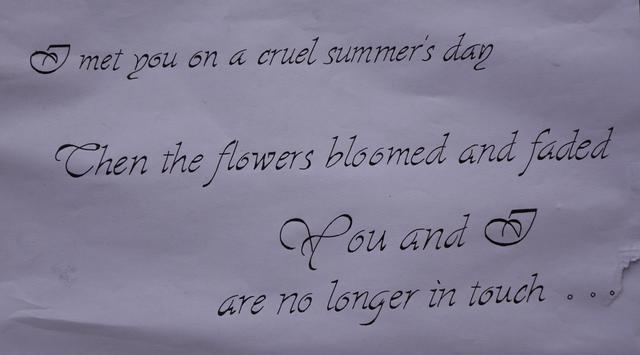 I met you on a cruel summer's day
Then the flowers bloomed and faded
You and I
are no longer in touch . . .